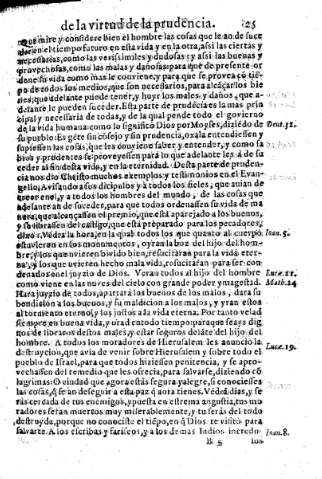 de la virtud de la prudencia. 125
que mire y considere bien el hombre las cosas que le an de suce
der en el tiempo futuro en esta vida y en la otra, assi las ciertas y
necessarias, como las verisimiles y dudosas: y assi las buenas y
provechosas, como las malas y dañosas: para que de presente or
dene su vida como mas le conviene, y para que se provea cõ tiẽ-
po de todos los medios, que son necessarios, para alcãçar los bie
nes, que adelante puede tener, y huyr los males, y daños, que a-
delante le pueden suceder. Esta parte de prudẽcia es la mas prin
cipal y necessaria de todas, y de la qual pende todo el govierno
de la vida humana: como lo significó Dios por Moysés, diziẽdo de Deut.32.
su pueblo. Es gẽte sin cõsejo y sin prudencia, oxala entendiessen y
supiessen las cosas, que les conviene saber, y entender, y como sa
bios y prudentes se proveyessen para lo que adelante les á de su
ceder al fin desta vida, y en la eternidad. Desta parte de pruden-
cia nos dio Christo muchos exemplos, y testimonios en el Evan-
gelio. Avisando a sus dicipulos y a todos los fieles, que avian de
creer en el, y a todos los hombres del mundo, de las cosas que
adelante an de suceder, para que todos ordenassen su vida de ma
nera, que alcançassen el premio, que está aparejado a los buenos,
y se librassen del castigo, que está preparado para los pecadores,
dizẽ: Vẽdra la hora, en la qual todos los que quanto al cuerpo Ioan.5.
estuvieren en sus monumentos, oyran la boz del hijo del hom-
bre, y los que uvieren bivido bien, resucitaran para la vida eter-
na, y los que uvieren hecho mala vida, resucitaran para ser con-
denados en el juyzio de Dios. Veran todos al hijo del hombre Luce.21.
como viene en las nuves del cielo con grande poder y magestad. Math.24
Hara juyzio de todos, apartará los buenos de los malos, dara su
bendicion a los buenos, y su maldicion a los malos, y yran estos
al tormento eterno, y los justos a la vida eterna. Por tanto velad
siempre en buena vida, y orad en todo tiempo para que seays dig
nos de libraros destos males, y estar seguros delãte del hijo del
hombre. A todos los moradores de Hierusalem les anunció la
destruycion, que avia de venir sobre Hierusalem y sobre todo el Luce.19.
pueblo de Israel, para que todos hiziessen penitencia, y se apro-
vechassen del remedio que les ofrecia, para salvarse, diziendo cõ
lagrimas: O ciudad que agora estás segura y alegre, si conociesses
las cosas, q̃ se an de seguir a esta paz q̃ aora tienes. Vẽdrã dias, y se
rás cercada de tus enemigos, y puesta en estrema angustia, tus mo
radores serán muertos muy miserablemente, y tu serás del todo
destruyda, porque no conociste el tiẽpo, en q̃ Dios te visitó para
salvarte. A los escribas y fariseos, y a los demas Iudios incredu- Ioan.8.
B 5 los